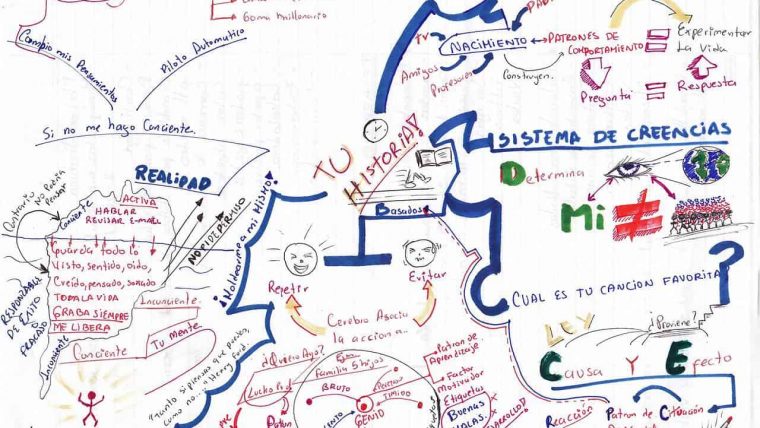 Goma Millonario
Cambio mis Pensamientos
Piloto Automatico
Si no me hago Conciente.
TV
NACIMIENTO
Amigos
Profesores
Construyen
PATRONES DE
COMPORTAMIENTO
Experimentar
La Vida
Pregunta
Respuesta
TU
HISTORIA!
Basados
SISTEMA DE CREENCIAS
Determina
Mi
REALIDAD
NO PIDE PERMISO
Moldearme a mi Mismo
Conciente
ACTIVA
HABLAR
REVISAR E-MAIL
Guarda todo lo
Visto, sentido, oido,
Creido, pensado, soñado
TODA LA VIDA
GRABA SIEMPRE
ME LIBERA
Inconciente.
RESPONSABLE
DE EXITO
o
FRACASO
Inconciente
Conciente
Tu Mente.
Repetir
Evitar
Cerebro Asocia
la acción a...
"Tanto si piensas que puedes,
como no..." Henry Ford.
¿Quiero Algo?
Familia 5 hijos
BRUJO
TIMIDO
GENIO
Patron de
Aprendizaje
Factor
Motivador
Etiquetas
Buenas
Malas.
CUAL ES TU CANCION FAVORITA?
LEY
¿Proviene?
Causa Y Efecto
Reacción
Patron de Situación